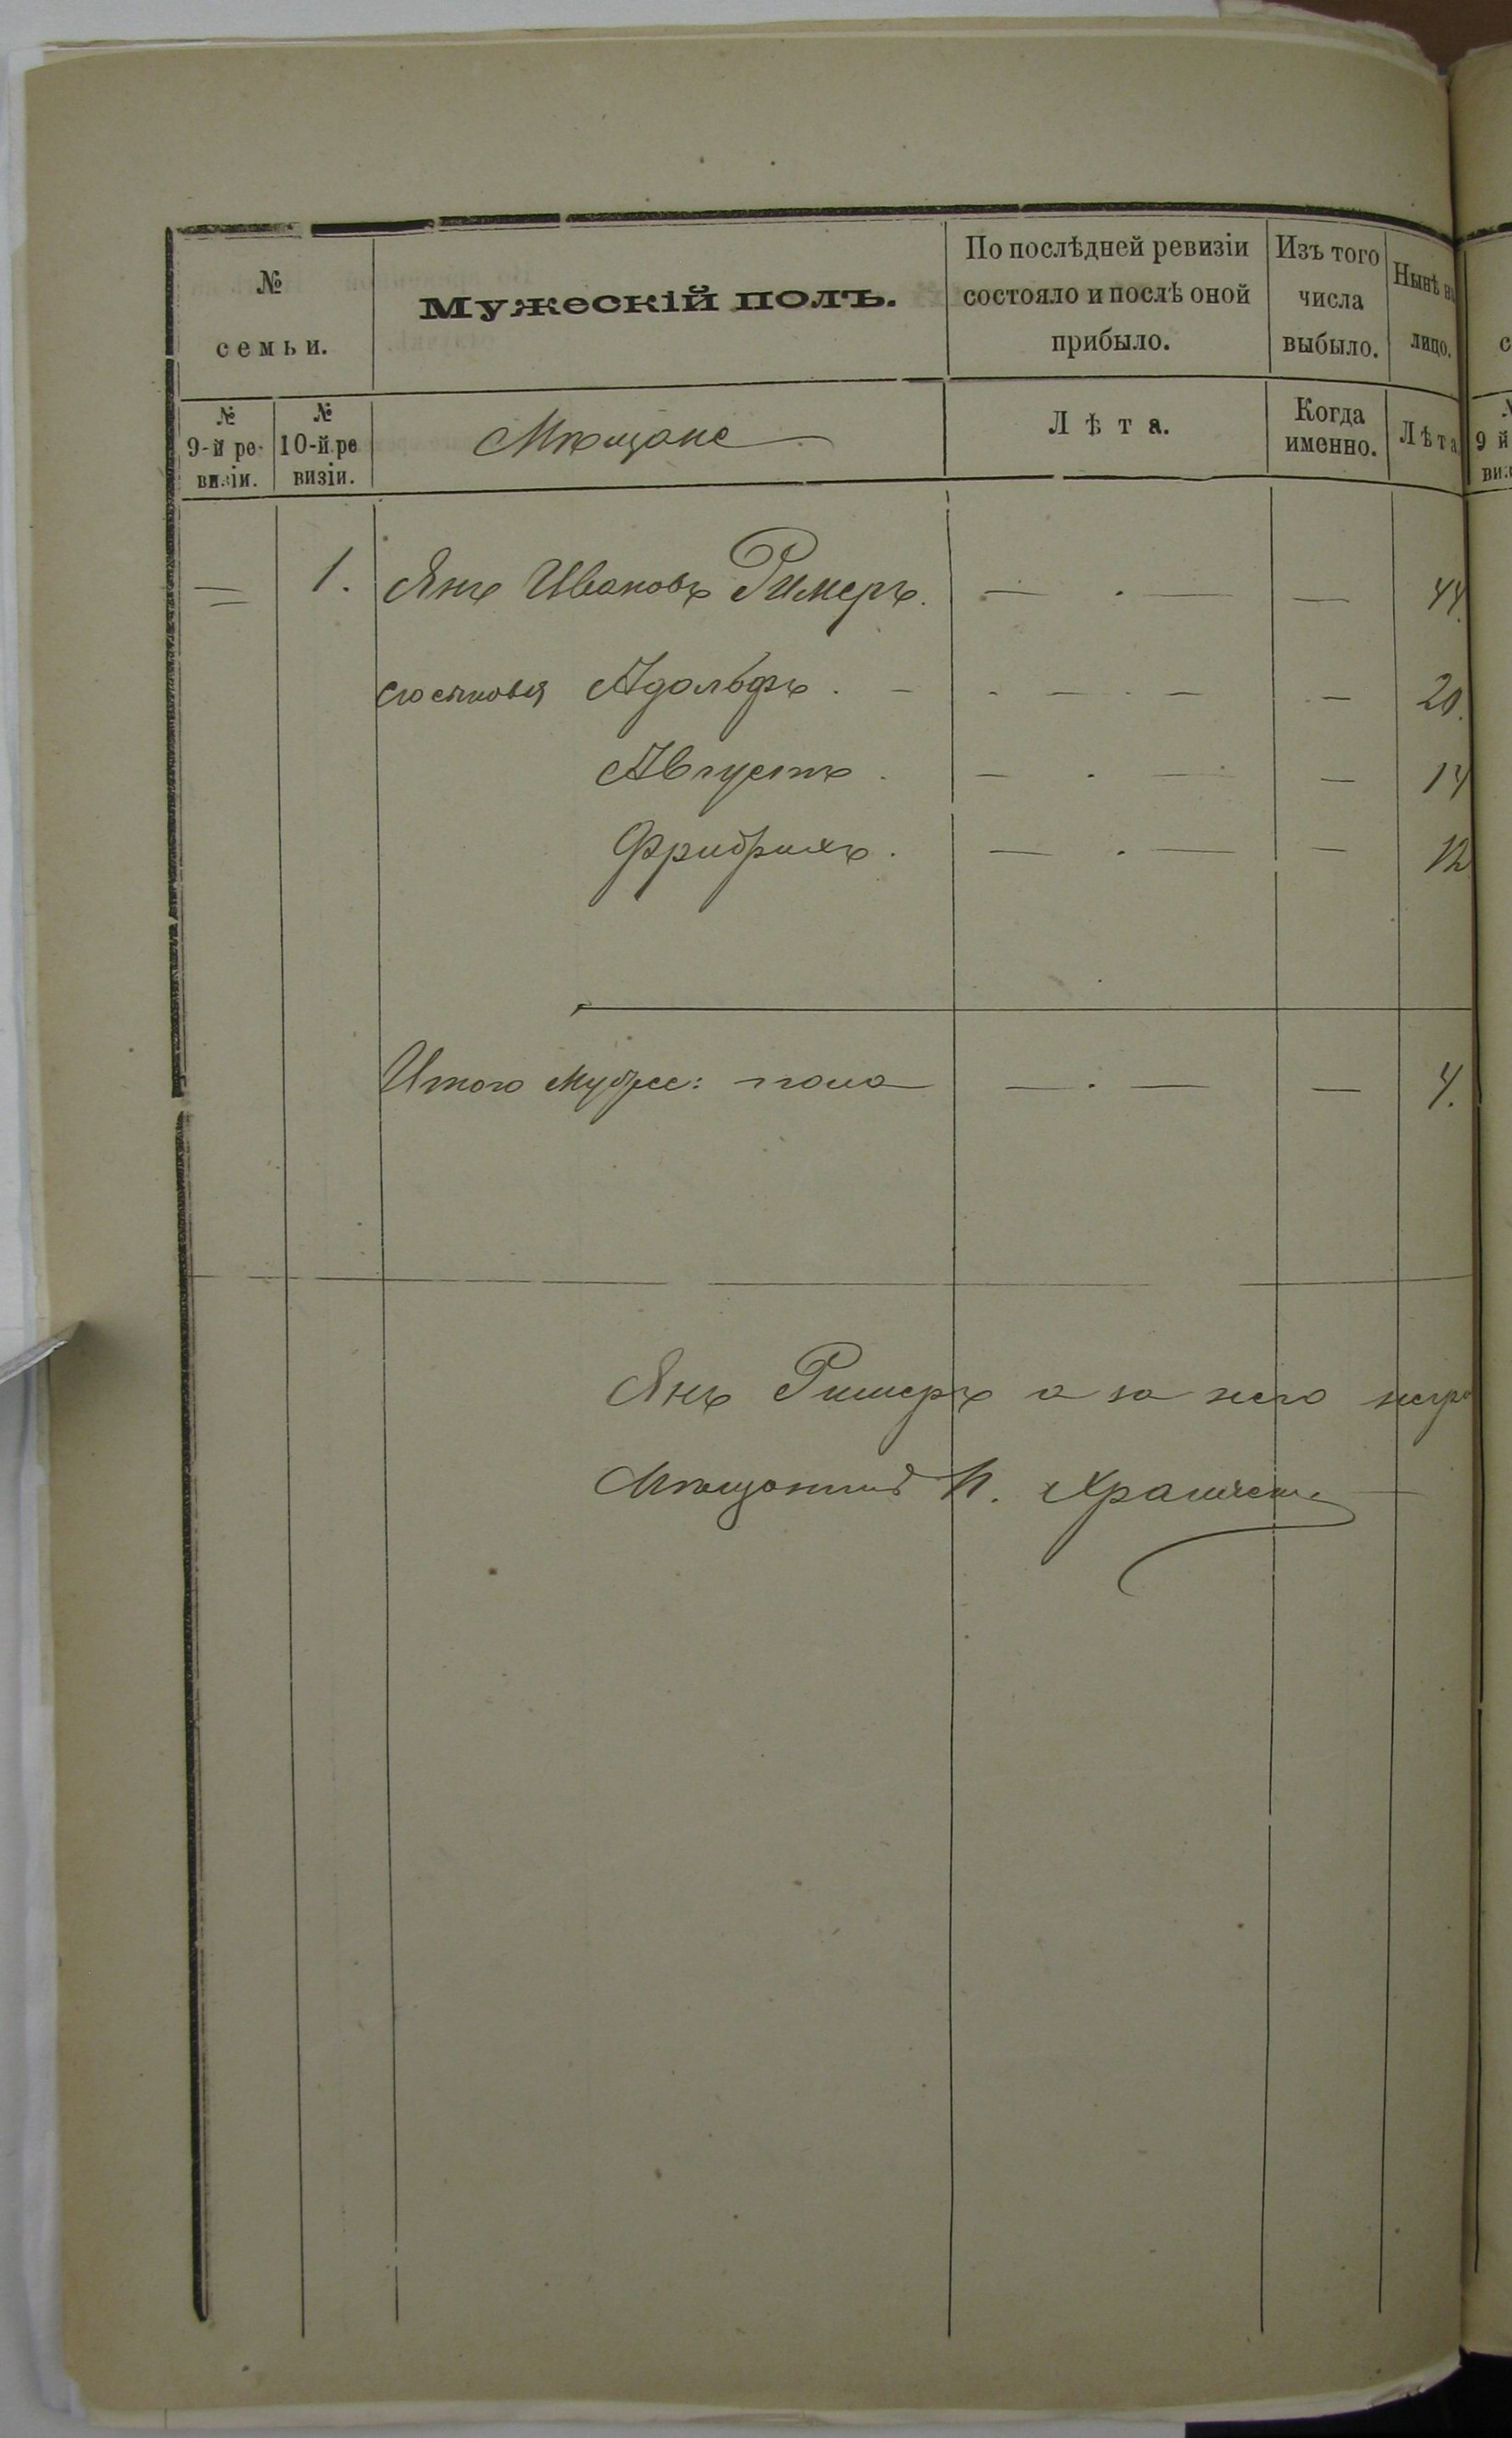 №
семьи.
Мужескій полъ.
По послѣдней ревизіи
состояло и послѣ оной
прибыло.
Изъ того
числа
выбыло.
Нынѣ на
лицо.
№
9-й ре-
визіи.
№
10-й ре
визіи.
Мѣщане
Лѣта.
Когда
именно.
Лѣта
— 1. Янъ Ивановъ Римеръ. — . — — 44.
его сыновья Адольфъ . — . — . — — 20.
Августъ . — . — — 14
Фридрихъ . — . — — 12
Итого мужес: пола — . — — 4.
Янъ Римеръ а за него негра
Мѣщанинъ